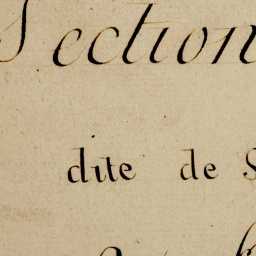 Section
dite de S